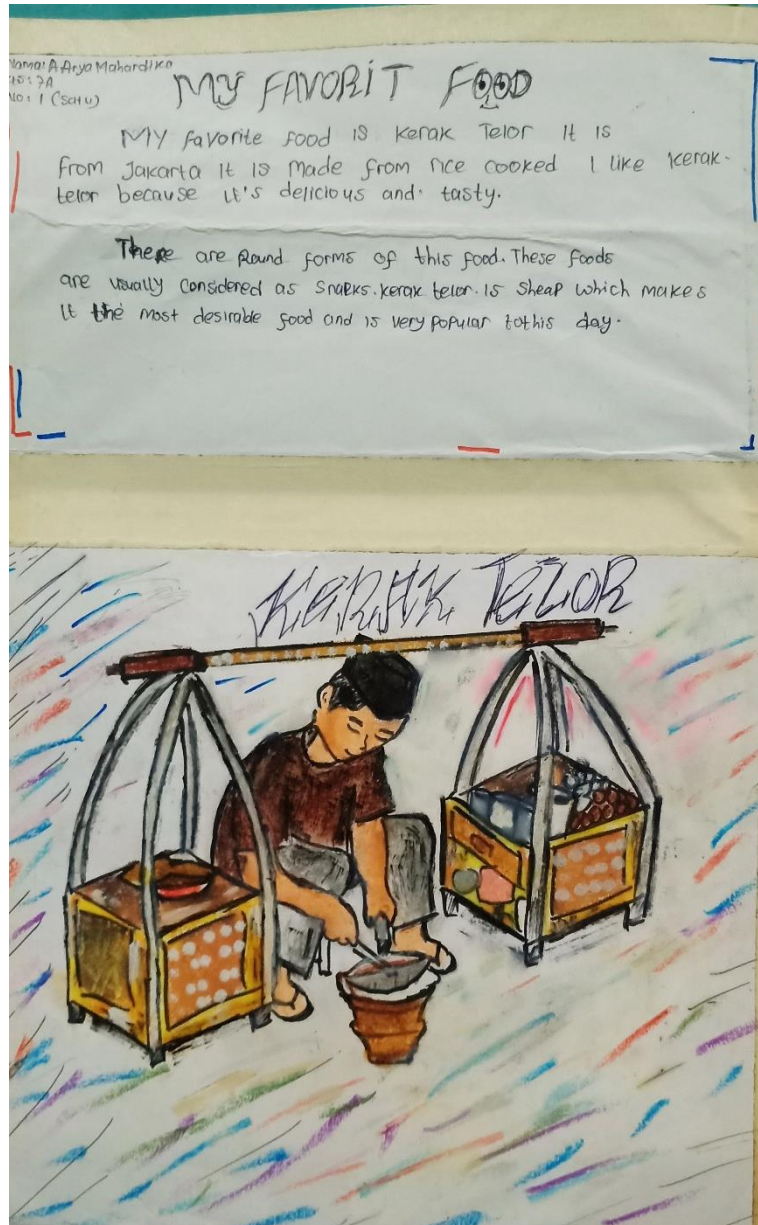 Nama: A Arya Mahardika
: 7A
No: 1 (Satu)
MY FAVORIT FOOD
MY favorite food is kerak Telor It is
from Jakarta It is made from rice cooked I like kerak-
telor because it's delicious and tasty.
There are Round forms of this food. These foods
are usually considered as snacks. kerak telor. Is sheap which makes
it the most desirable food and is very popular tothis day.
KERAK TELOR